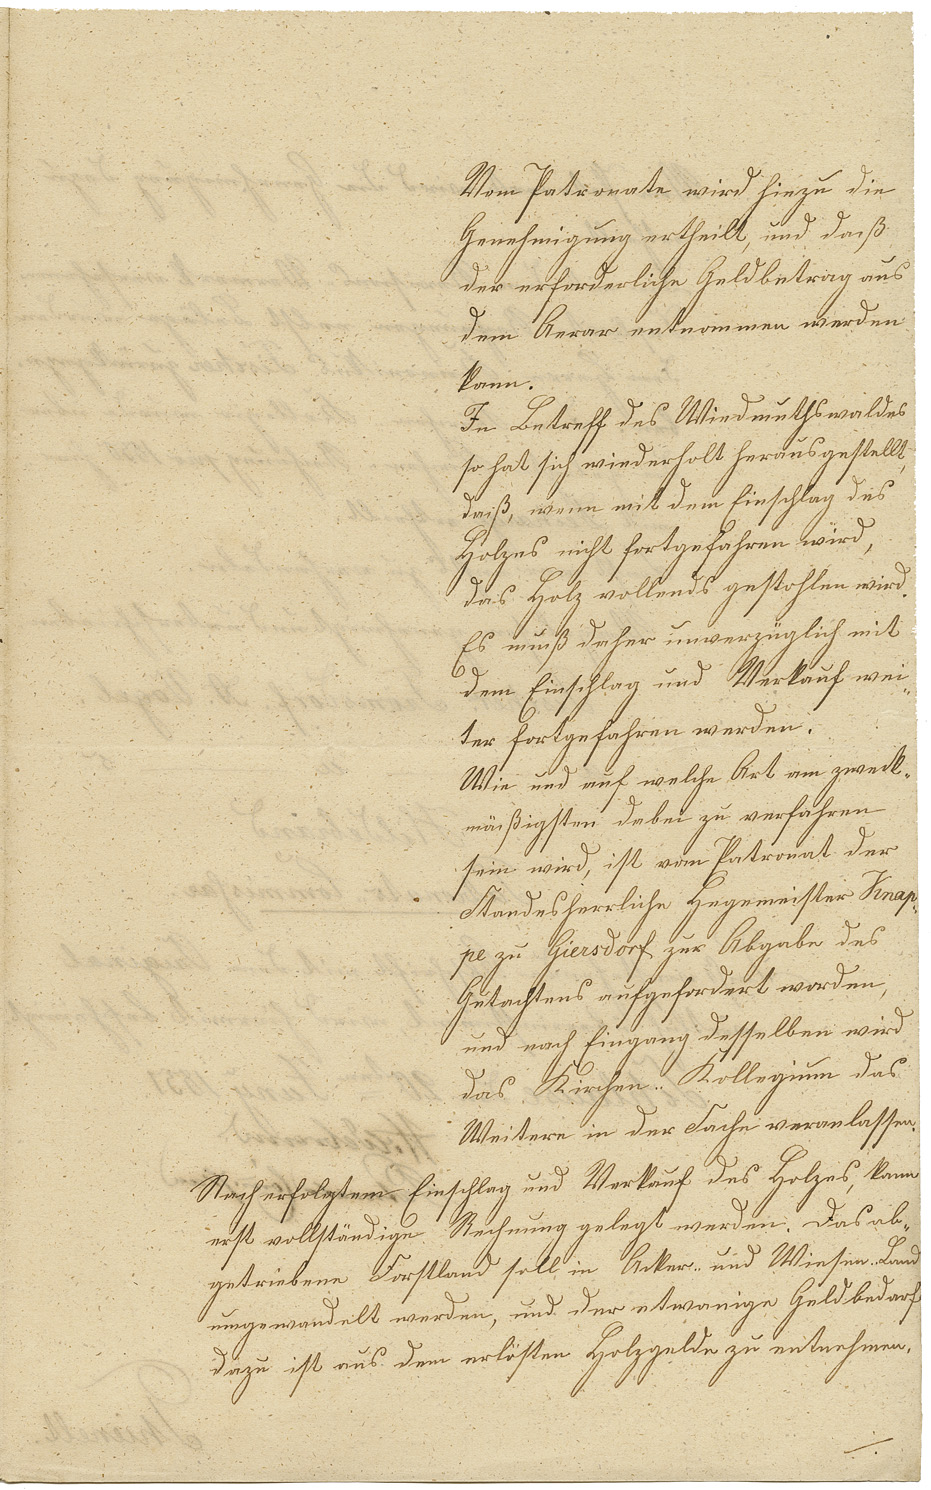 Vom Patronate wird hiezu die
Genehmigung ertheilt, und daß
der erforderliche Geldbetrag aus
dem Aerar entnommen werden
kann.
In Betreff des Wiedmuthswaldes
so hat sich wiederholt herausgestellt,
daß, wenn mit dem Einschlag des
Holzes nicht fortgefahren wird,
das Holz vollends gestohlen wird.
Es muß daher unverzüglich mit
dem Einschlag und Verkauf wei-
ter fortgefahren werden.
Wie und auf welche Art am zweck-
mäßigsten dabei zu verfahren
sein wird, ist vom Patronat der
Standesherrliche Hegemeister Knap-
pe zu Giersdorf zur Abgabe des
Gutachtens aufgefordert worden,
und nach Eingang desselben wird
das Kirchen-Kollegium das
Weitere in der Sache veranlassen.
Nach erfolgtem Einschlag und Verkauf des Holzes, kann
erst vollständige Rechnung gelegt werden. Das ab-
getriebene Forstland soll in Acker- und Wiesen-Land
umgewandelt werden, und der etwanige Geldbedarf
dazu ist aus dem erlösten Holzgelde zu entnehmen.